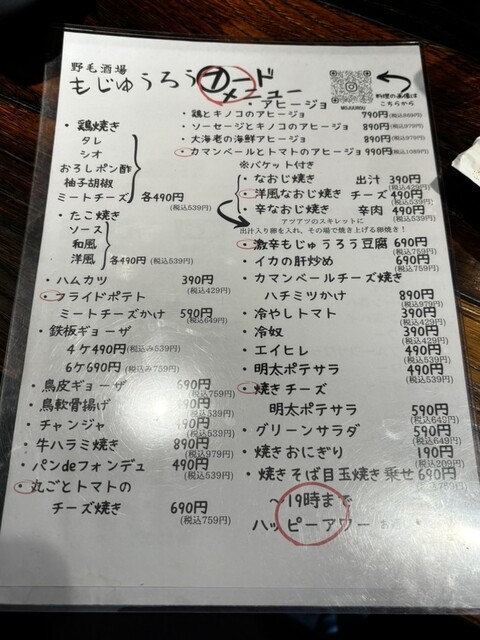 野毛酒場
もじゅうろう フード
メニュー
料理の画像は
こちらから
MOJUUROU
・鶏焼き
タレ
シオ
おろしポン酢
柚子胡椒
ミートチーズ 各490円
(税込539円)
・たこ焼き
ソース
和風
洋風 各490円(税込539円)
・ハムカツ 390円
(税込429円)
・フライドポテト
ミートチーズかけ 590円
(税込649円)
・鉄板ギョーザ
4ケ490円(税込み539円)
6ケ690円(税込み759円)
・鳥皮ギョーザ 690円
(税込759円)
・鳥軟骨揚げ 90円
(税込539円)
・チャンジャ 490円
(税込539円)
・牛ハラミ焼き 890円
(税込979円)
・パンdeフォンデュ 490円
(税込539円)
・丸ごとトマトの
チーズ焼き 690円
(税込759円)
・アヒージョ
・鶏とキノコのアヒージョ 790円(税込869円)
・ソーセージとキノコのアヒージョ 890円(税込979円)
・大海老の海鮮アヒージョ 890円(税込979円)
・カマンベールとトマトのアヒージョ 990円(税込1089円)
※バケット付き
・なおじ焼き 出汁 390円
(税込429円)
・洋風なおじ焼き チーズ 490円
(税込539円)
・辛なおじ焼き 辛肉 490円
(税込539円)
アツアツのスキレットに
出汁入り卵を入れ、その場で焼き上げる卵焼き！
・激辛もじゅうろう豆腐 690円
(税込759円)
・イカの肝炒め 690円
(税込759円)
・カマンベールチーズ焼き
ハチミツかけ 890円
(税込979円)
・冷やしトマト 390円
(税込429円)
・冷奴 390円
(税込429円)
・エイヒレ 490円
(税込539円)
・明太ポテサラ 490円
(税込539円)
・焼きチーズ
明太ポテサラ 590円
(税込649円)
・グリーンサラダ 590円
(税込649円)
・焼きおにぎり 190円
(税込209円)
・焼きそば目玉焼き乗せ 690円
(税込759円)
～19時まで
ハッピーアワー